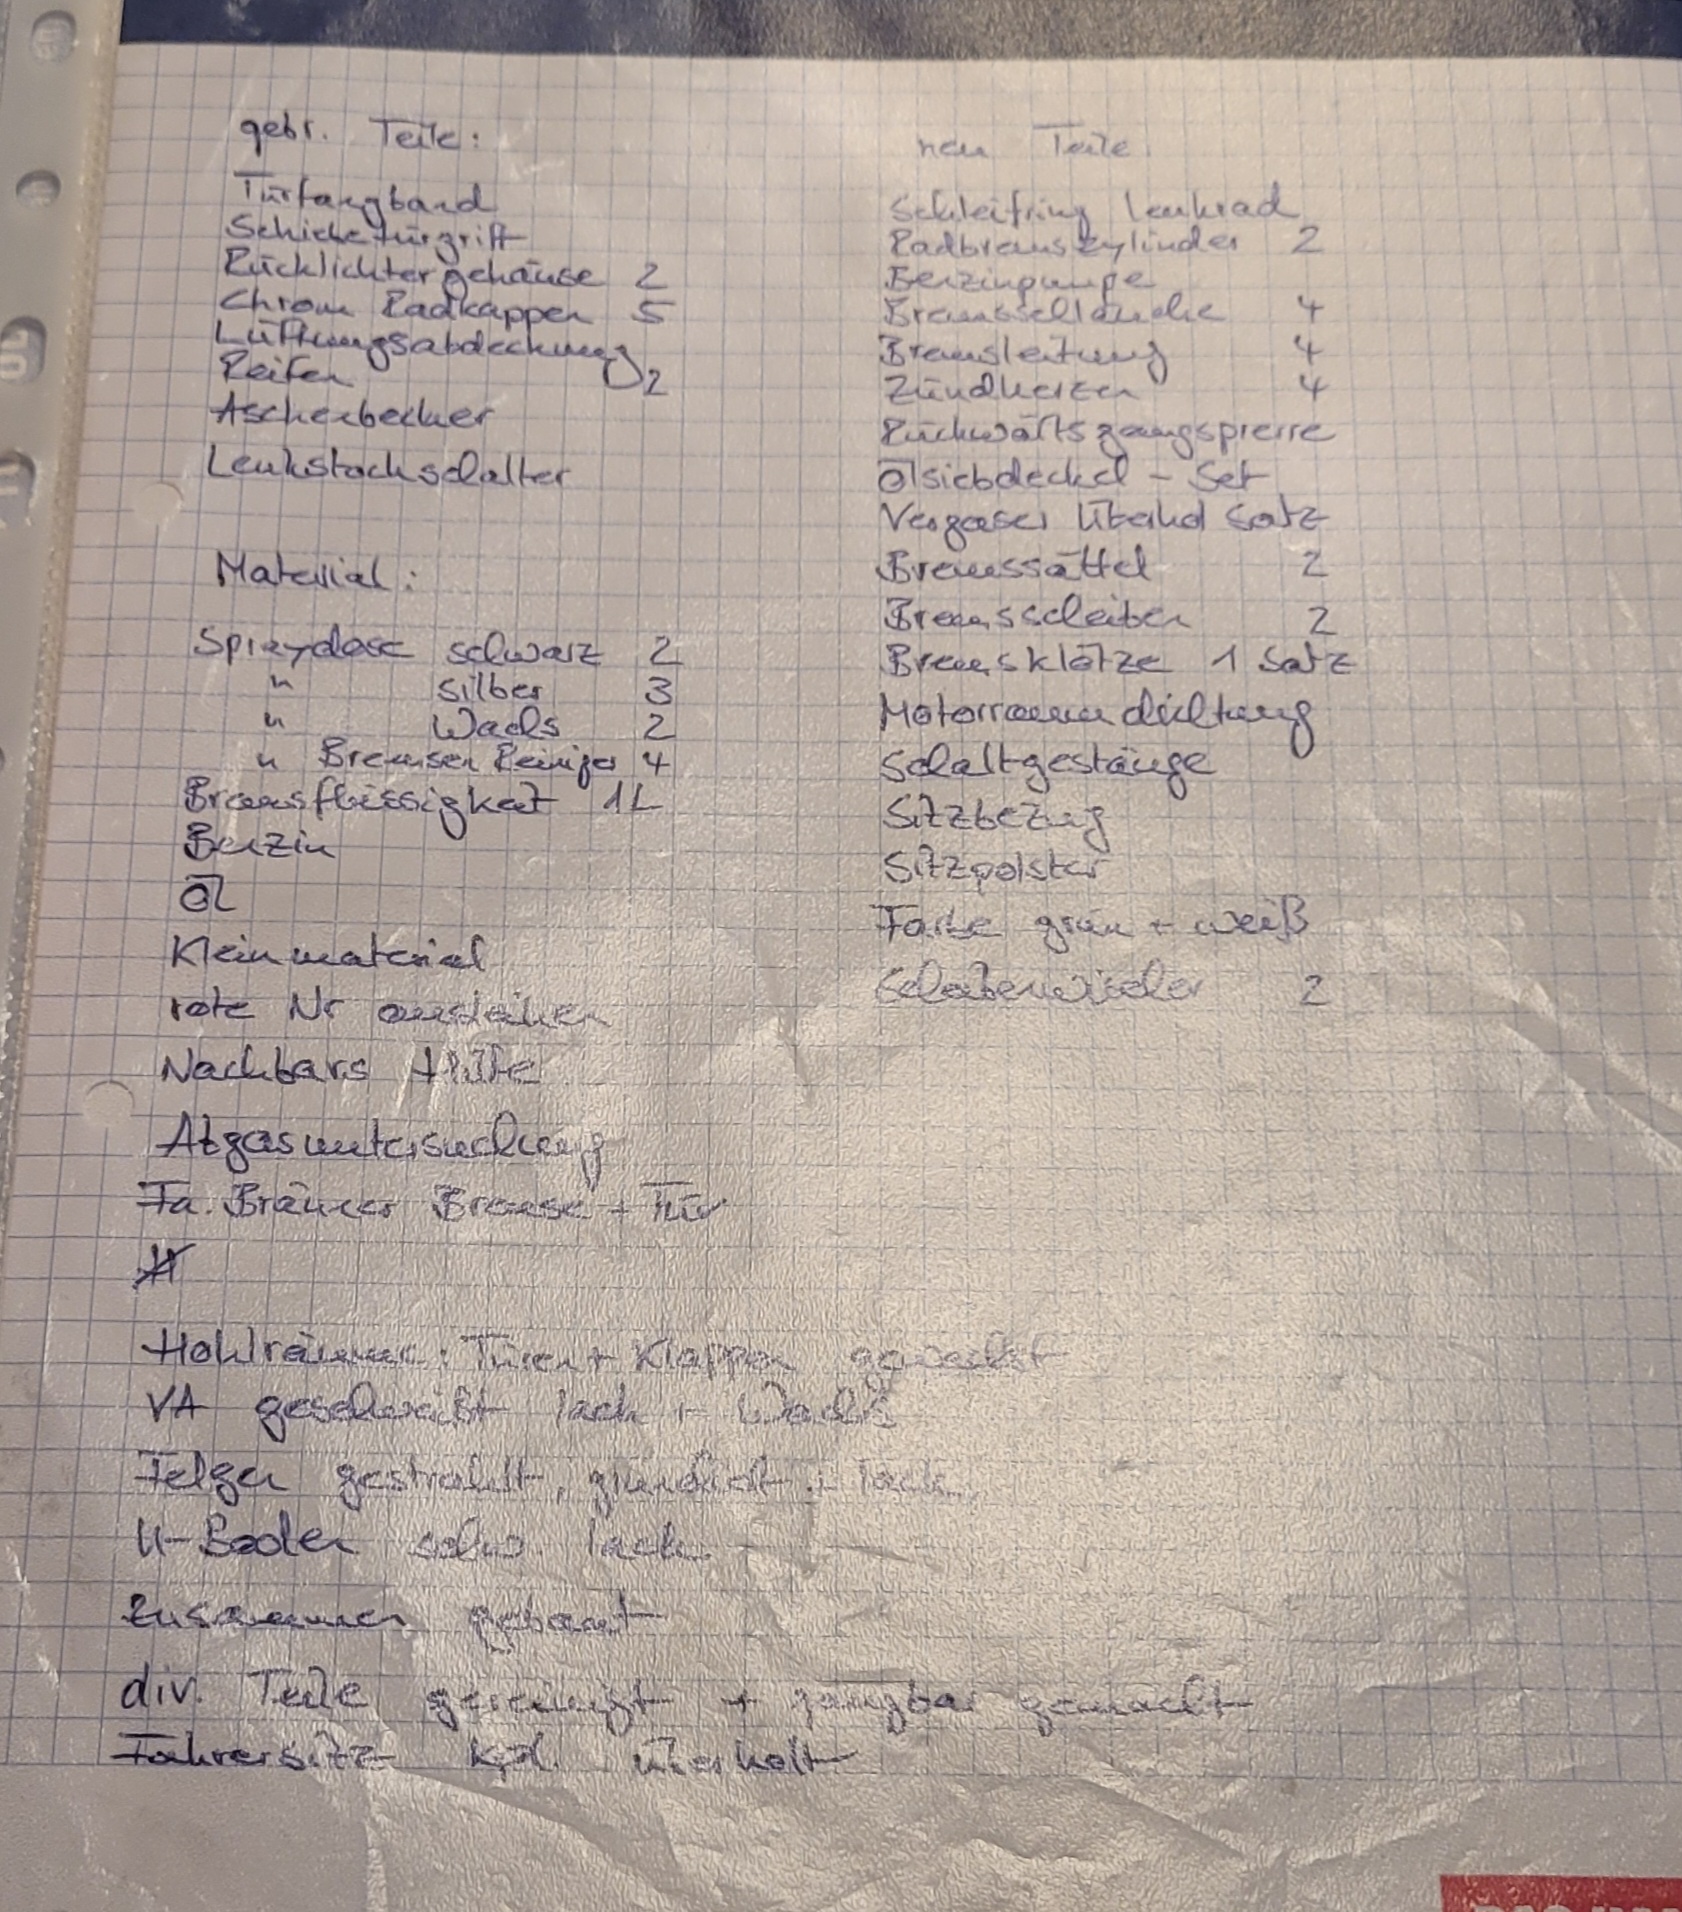 gebr. Teile:
Türfangband
Schiebetürgriff
Rücklichtergehäuse 2
Chrom Radkappen 5
Lüftungsabdeckung
Reifen 2
Aschenbecher
Lenkstockschalter
Material:
Spraydose schwarz 2
" silber 3
" Wachs 2
" Bremsen Reiniger 4
Bremsflüssigkeit 1L
Benzin
Öl
Kleinmaterial
rote Nr ausleihen
Nachbars Hilfe
Abgasuntersuchung
Fa. Bräuner Bremse + Tür
Hohlräume: Türen + Klappen gewachst
VA geschweißt lack + Wachs
Felgen gestrahlt, grundiert + lack.
U-Boden schw. lack.
zusammen gebaut
div. Teile gereinigt + gangbar gemacht
Fahrersitz kpl. überholt
neu Teile:
Schleifring Lenkrad
Radbremszylinder 2
Benzinpumpe
Bremsschläuche 4
Bremsleitung 4
Zündkerzen 4
Rückwärtsgangsperre
Ölsiebdeckel - Set
Vergaser Überhol Satz
Bremssättel 2
Bremsscheiben 2
Bremsklötze 1 Satz
Motorraumdichtung
Schaltgestänge
Sitzbezug
Sitzpolster
Farbe grün + weiß
Scheibenwischer 2